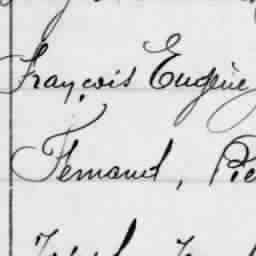 François Eugène
Fernand, Pie